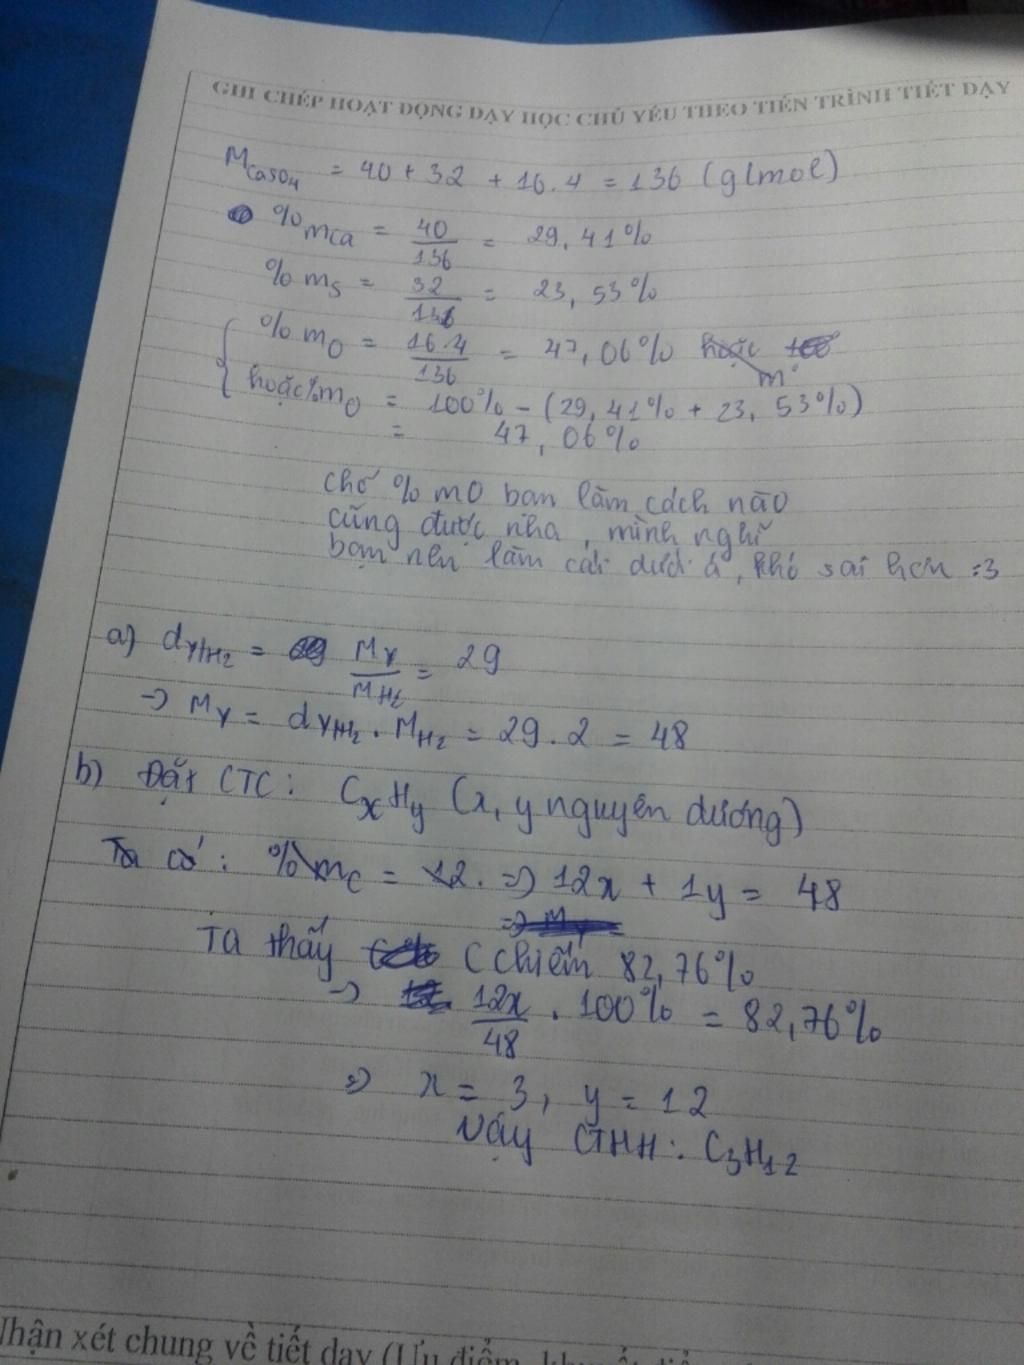 GHI CHÉP HOẠT ĐỘNG DẠY HỌC CHỦ YẾU THEO TIẾN TRÌNH TIẾT DẠY
M_CaSO4 = 40 + 32 + 16.4 = 136 (g/mol)
% mCa = 40/136 = 29,41%
% mS = 32/136 = 23,53%
% mO = 16.4/136 = 47,06% hoặc 100
hoặc % mO = 100% - (29,41% + 23,53%)
= 47,06%
chỗ % mO bạn làm cách nào
cũng được nha, mình nghĩ
bạn nên làm cái dưới á, khó sai hơn :3
a) dY/H2 = MY/MH2 = 29
-> MY = dY/H2 . MH2 = 29.2 = 48
b) Đặt CTC: CxHy (x, y nguyên dương)
Ta có: % mC = 12. => 12x + 1y = 48
Ta thấy C chiếm 82,76%
=> 12x/48 . 100% = 82,76%
=> x = 3, y = 12
Vậy CTHH: C3H12
Nhận xét chung về tiết dạy (Ưu điểm,